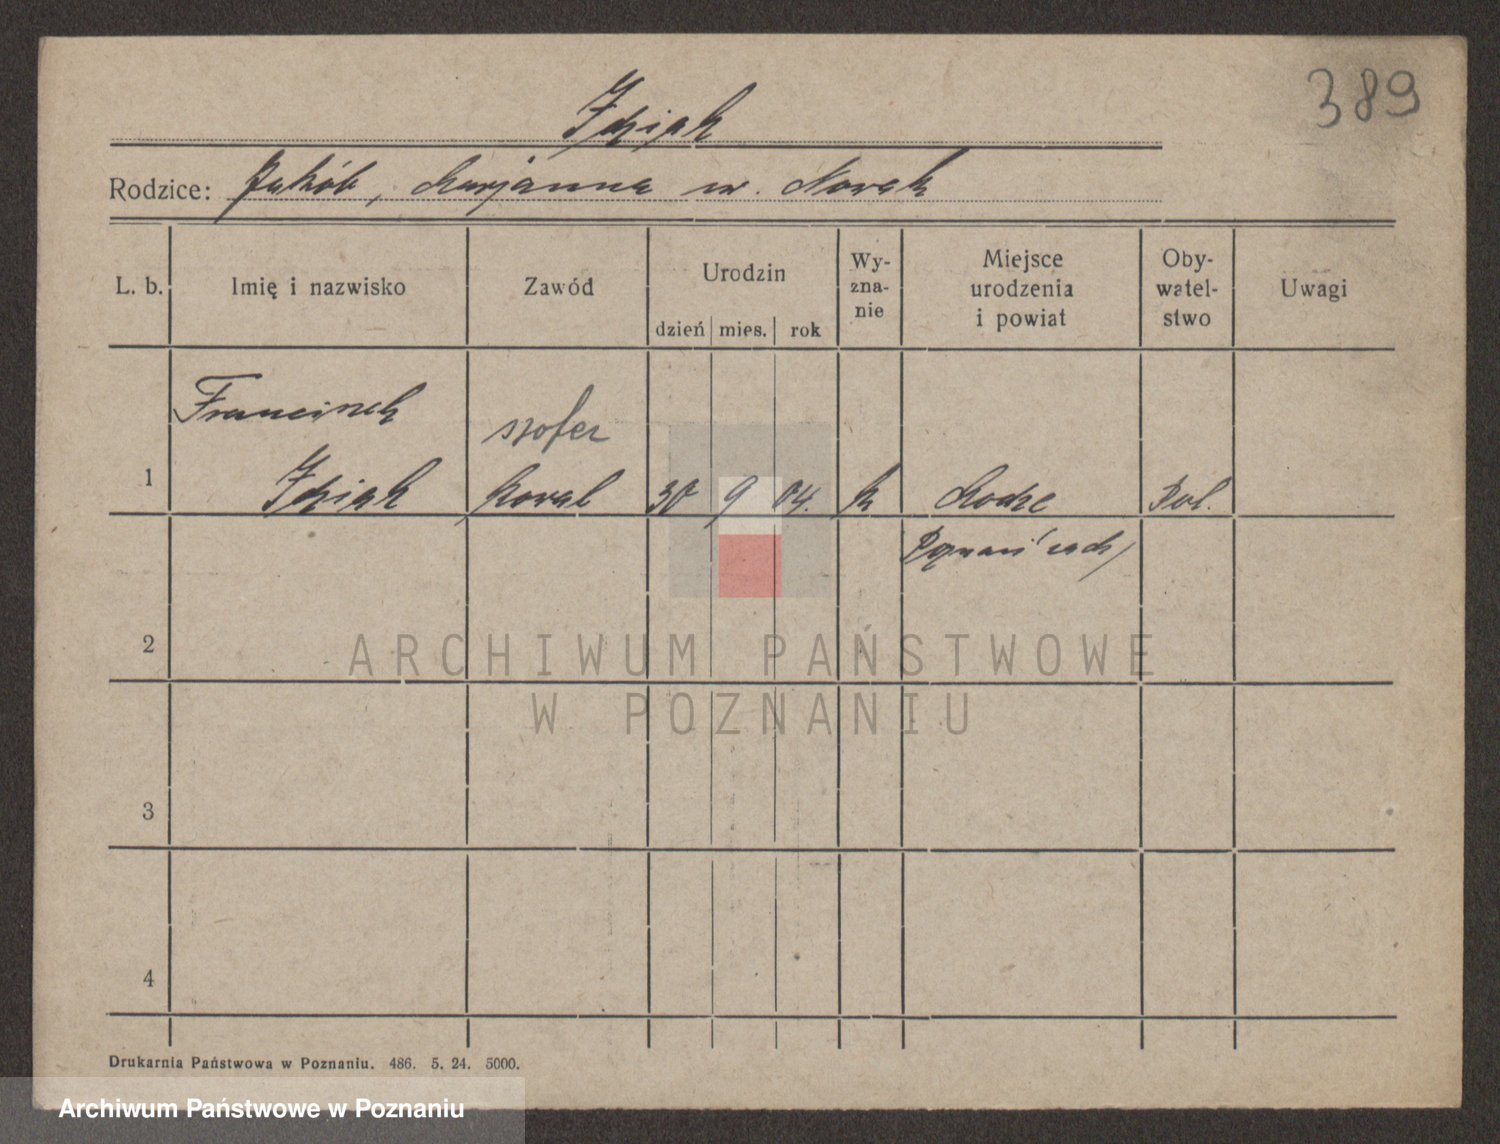 389
Idziak
Rodzice: Jakób, Marjanna ur. Nowak
L. b. Imię i nazwisko Zawód Urodzin dzień mies. rok Wy-zna-nie Miejsce urodzenia i powiat Oby-watel-stwo Uwagi
Franciszek szofer
1 Idziak kowal 30 9 04. k Pol.
Poznań zach/
2
ARCHIWUM PAŃSTWOWE
W POZNANIU
3
4
Drukarnia Państwowa w Poznaniu. 486. 5. 24. 5000.
Archiwum Państwowe w Poznaniu